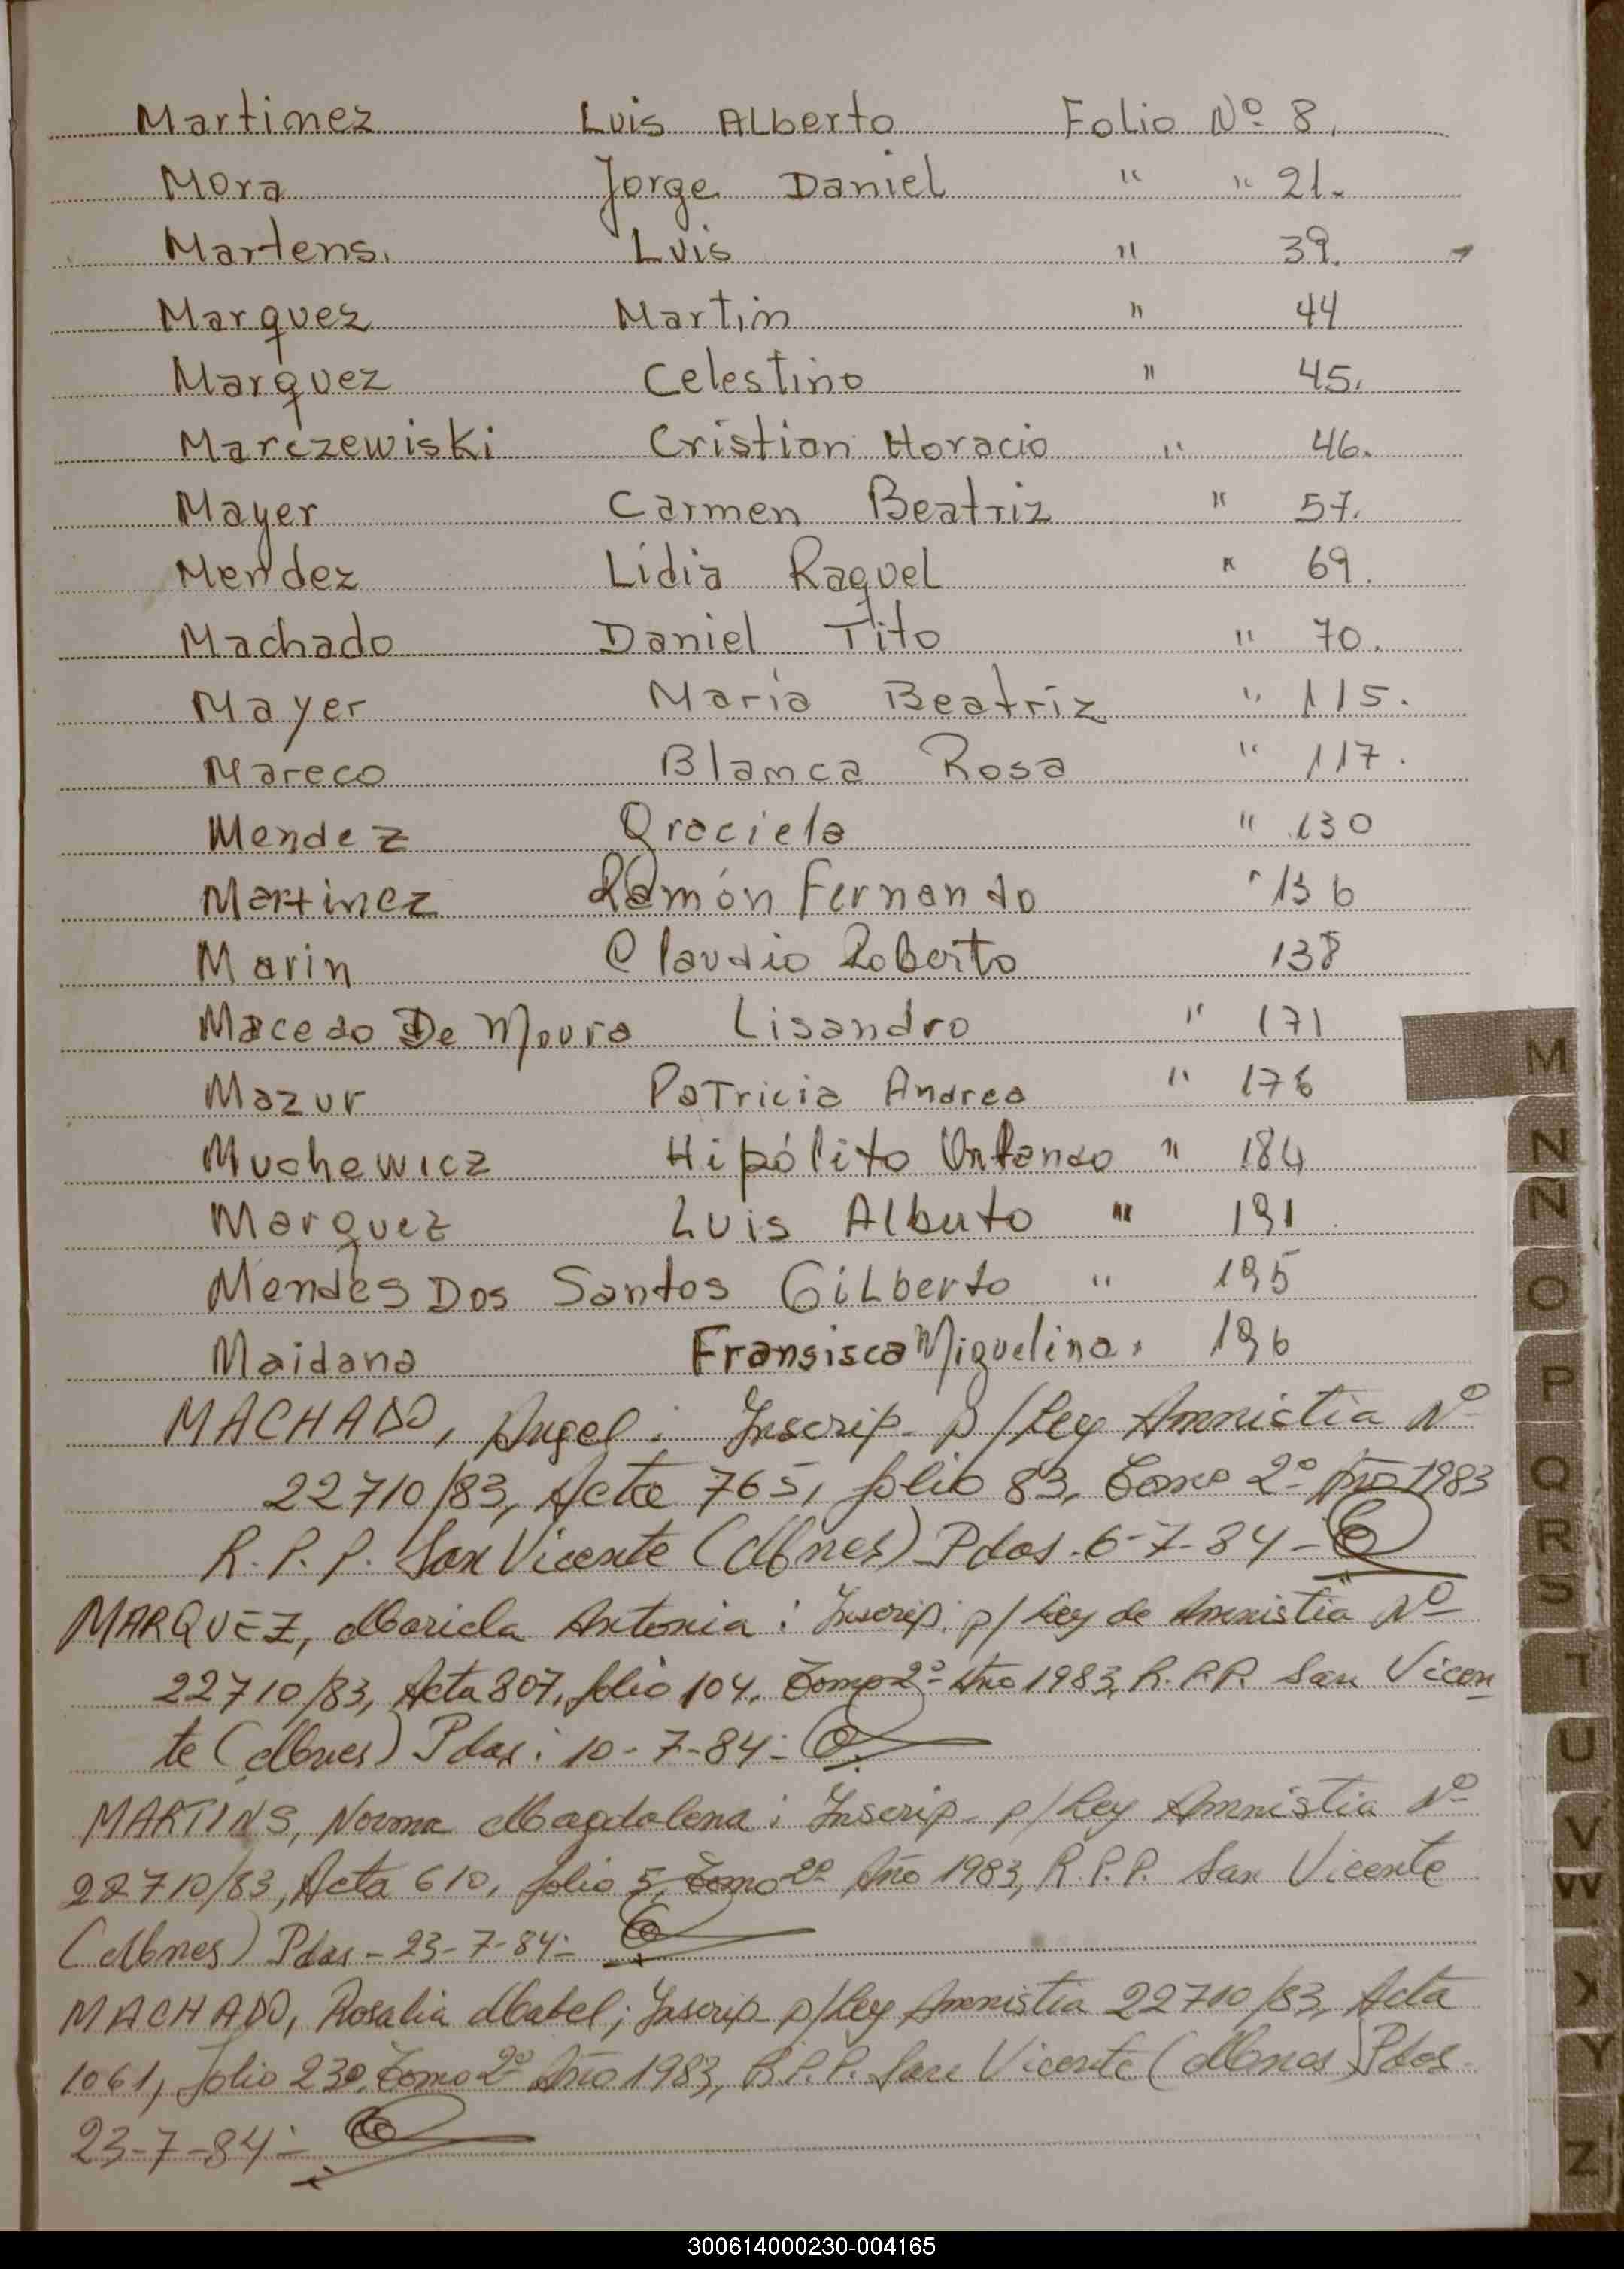 Martinez Luis Alberto Folio Nº 8.
Mora Jorge Daniel " " 21.
Martens. Luis " 39.
Marquez Martin " 44
Marquez Celestino " 45.
Marczewiski Cristian Horacio " 46.
Mayer Carmen Beatriz " 57.
Mendez Lidia Raquel " 69.
Machado Daniel Tito " 70.
Mayer María Beatríz " 115.
Mareco Blanca Rosa " 117.
Mendez Graciela " 130
Martinez Ramón Fernando " 136
Marin Claudio Roberto 138
Macedo De Moura Lisandro " 171
Mazur Patricia Andrea " 176
Muchewicz Hipólito " 184
Marquez Luis Alberto " 191
Mendes Dos Santos Gilberto " 195
Maidana Fransisca Miguelina " 196
MACHADO, Angel: Inscrip. p/Ley Amnistia Nº
22710/83, Acta 765, folio 83, Tomo 2º Año 1983
R.P.P. San Vicente (Mnes) Pdas. 6-7-84-
MARQUEZ, Mariela Antonia: Inscrip. p/ Ley de Amnistia Nº
22710/83, Acta 807, folio 104, Tomo 2º Año 1983, R.P.P. San Vicen
te (Mnes) Pdas: 10-7-84-
MARTINS, Norma Magdalena: Inscrip. p/Ley Amnistia Nº
22710/83, Acta 610, folio 5, Tomo 2º Año 1983, R.P.P. San Vicente
(Mnes) Pdas - 23-7-84-
MACHADO, Rosalia Mabel; Inscrip p/Ley Amnistia 22710/83, Acta
1061, folio 230, Tomo 2º Año 1983, R.P.P. San Vicente (Mnes) Pdas
23-7-84-
M
N
N
O
P
Q
R
S
T
U
V
W
X
Y
Z
300614000230-004165